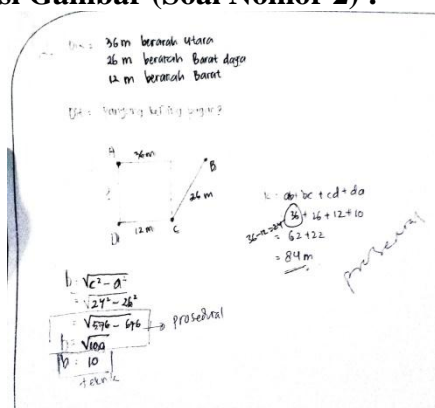 si Gambar (Soal Nomor 2) :
36 m berarah utara
26 m berarah Barat daya
12 m berarah Barat
A
36 m
B
26 m
D
12 m
C
ab + bc + cd + da
36-12=24
36 + 26 + 12 + 10
= 62 + 22
= 84 m
prosedural
b = √c² - a²
= √24² - 26²
= √576 - 676
→ prosedural
b = √100
b = 10